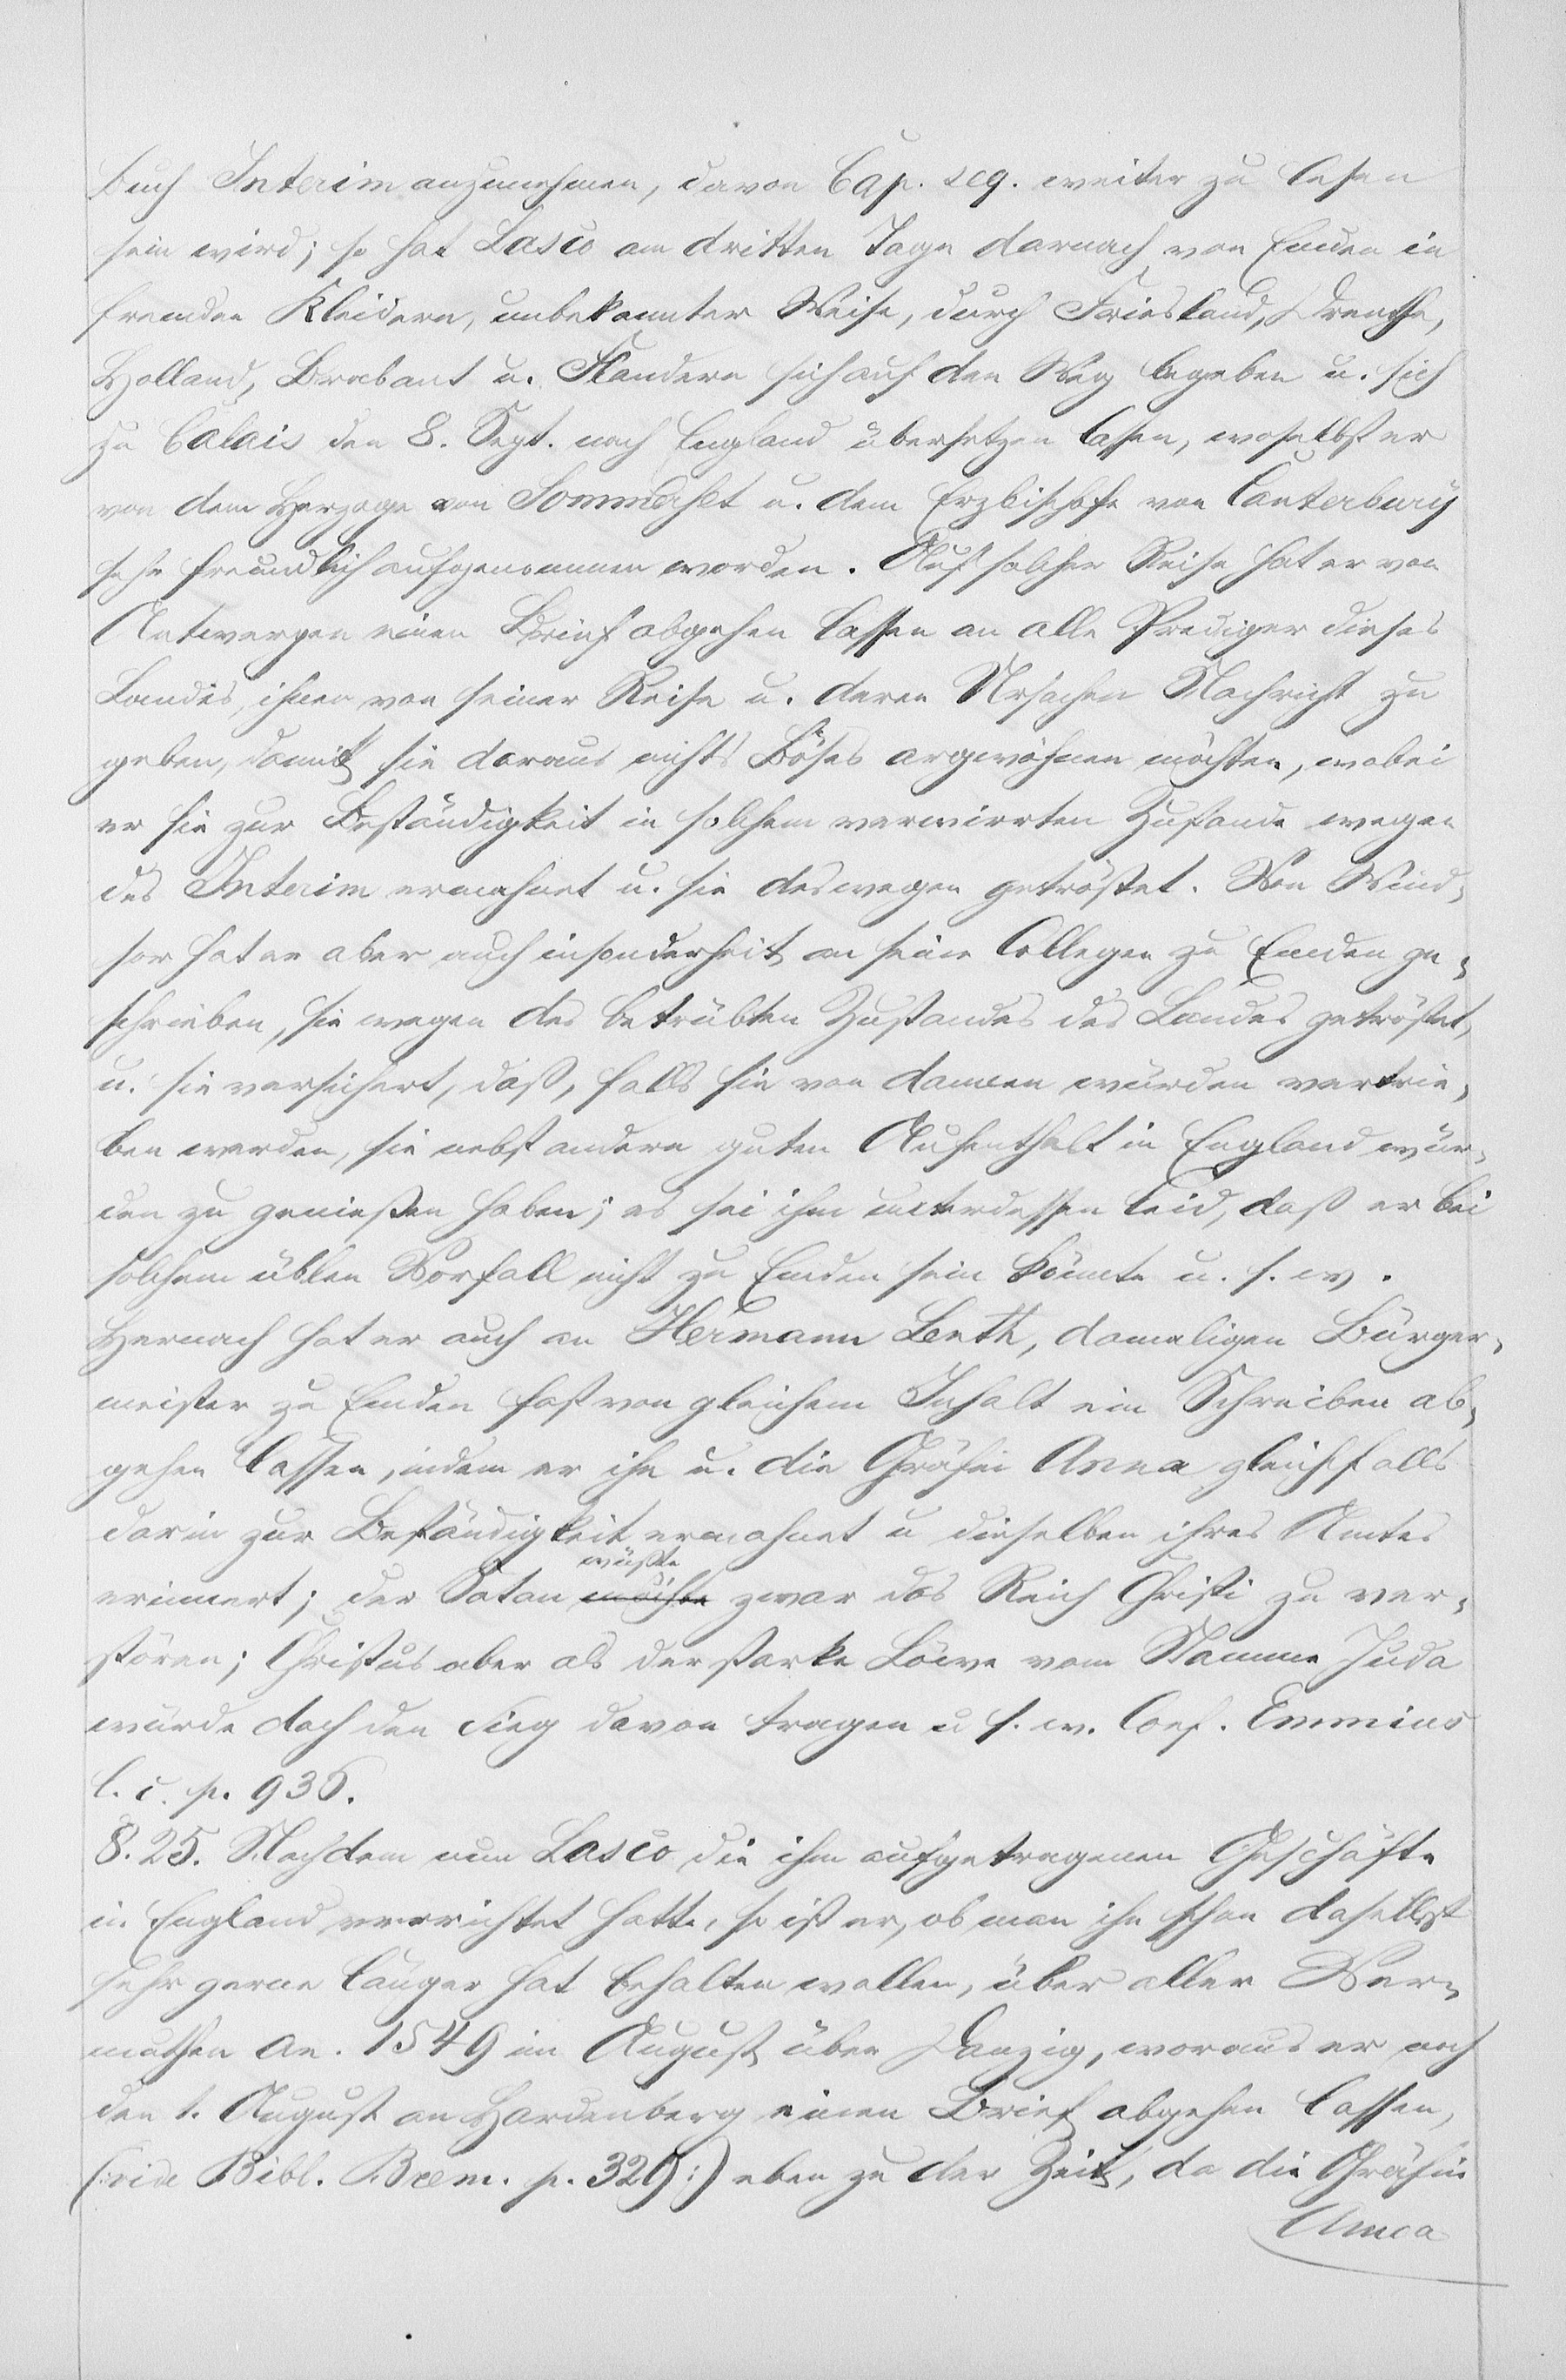 Buch Interim anzunehmen, davon Cap. seq. weiter zu lesen
sein wird; so hat Lasco am dritten Tage darnach von Emden in
fremden Kleidern, unbekannter Weise, durch Friesland, Drenthe,
Holland, Brabant u. Flandern sich auf den Weg begeben u. sich
zu Calais den 8. Sept. nach England übersetzen lassen, woselbst er
von dem Herzoge von Sommerset u. dem Erzbischofe von Canterbury
sehr freundlich aufgenommen worden. Auf solcher Reise hat er von
Antwerpen einen Brief abgehen lassen an alle Prediger dieses
Landes, ihnen von seiner Reise u. deren Ursachen Nachricht zu
geben, damit sie daraus nichts Böses argwöhnen möchten, wobei
er sie zur Beständigkeit in solchem verwirrten Zustande wegen
des Interim ermahnet u. sie deswegen getröstet. Von Wind-
sor hat er aber auch insonderheit an seine Collegen zu Emden ge-
schrieben, sie wegen des betrübten Zustandes des Landes getröstet,
u. sie versichert, daß, falls sie von dannen würden vertrie-
ben werden, sie nebst andern guten Aufenthalt in England wür-
den zu genießen haben; es sei ihm unterdessen leid, daß er bei
solchem üblen Vorfall nicht zu Emden sein könnte u. s. w.
Hernach hat er auch an Hermann Lenth, damaligen Bürger-
meister zu Emden fast von gleichem Inhalt ein Schreiben ab-
gehen lassen, indem er ihn u. die Gräfin Anna gleichfalls
darin zur Beständigkeit ermahnet u dieselben ihres Amtes
erinnert; der Satan wüßte zwar das Reich Christi zu ver-
stören; Christus aber als der starke Löwe vom Stamme Juda
würde doch den Sieg davon tragen u s. w. Conf. Emmius
l. c. p. 936.
§. 25. Nachdem nun Lasco die ihm aufgetragenen Geschäfte
in England verrichtet hatte, so ist er, ob man ihn schon daselbst
sehr gerne länger hat behalten wollen, über aller Ver-
muthen an. 1549 im August über Danzig, woraus er noch
den 1. August an Hardenberg einen Brief abgehen lassen,
(:vide Bibl. Brem. p. 329:) eben zu der Zeit, da die Gräfin
Anna